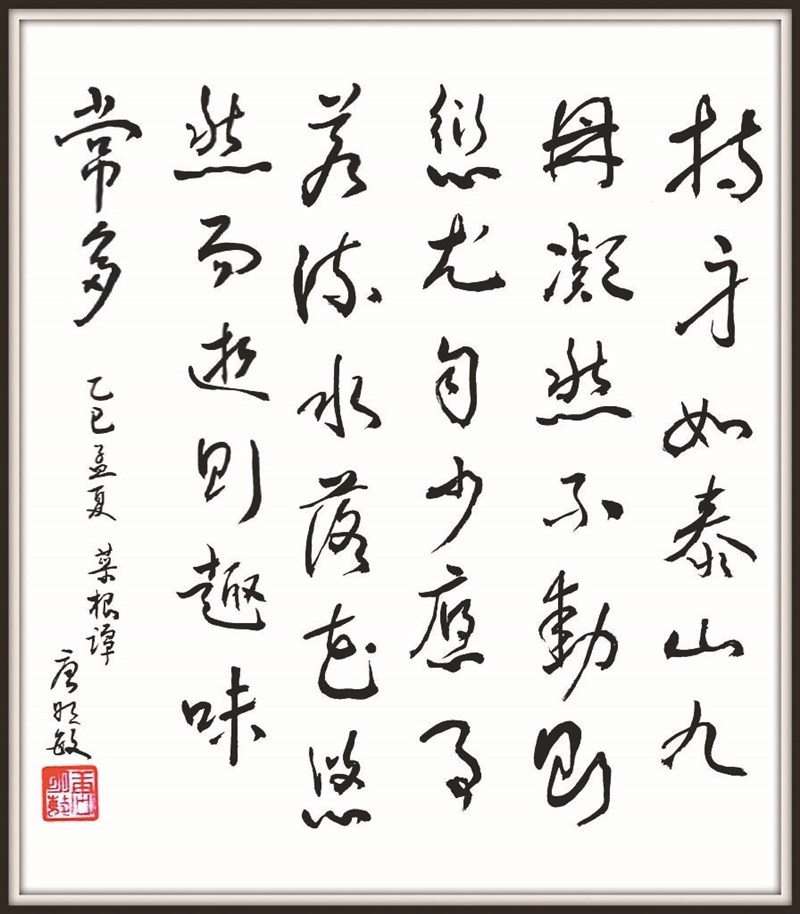 持身如泰山九
鼎凝然不動則
愆尤自少應事
若流水落花悠
然而逝則趣味
常多
乙巳孟夏 菜根譚
唐明敏